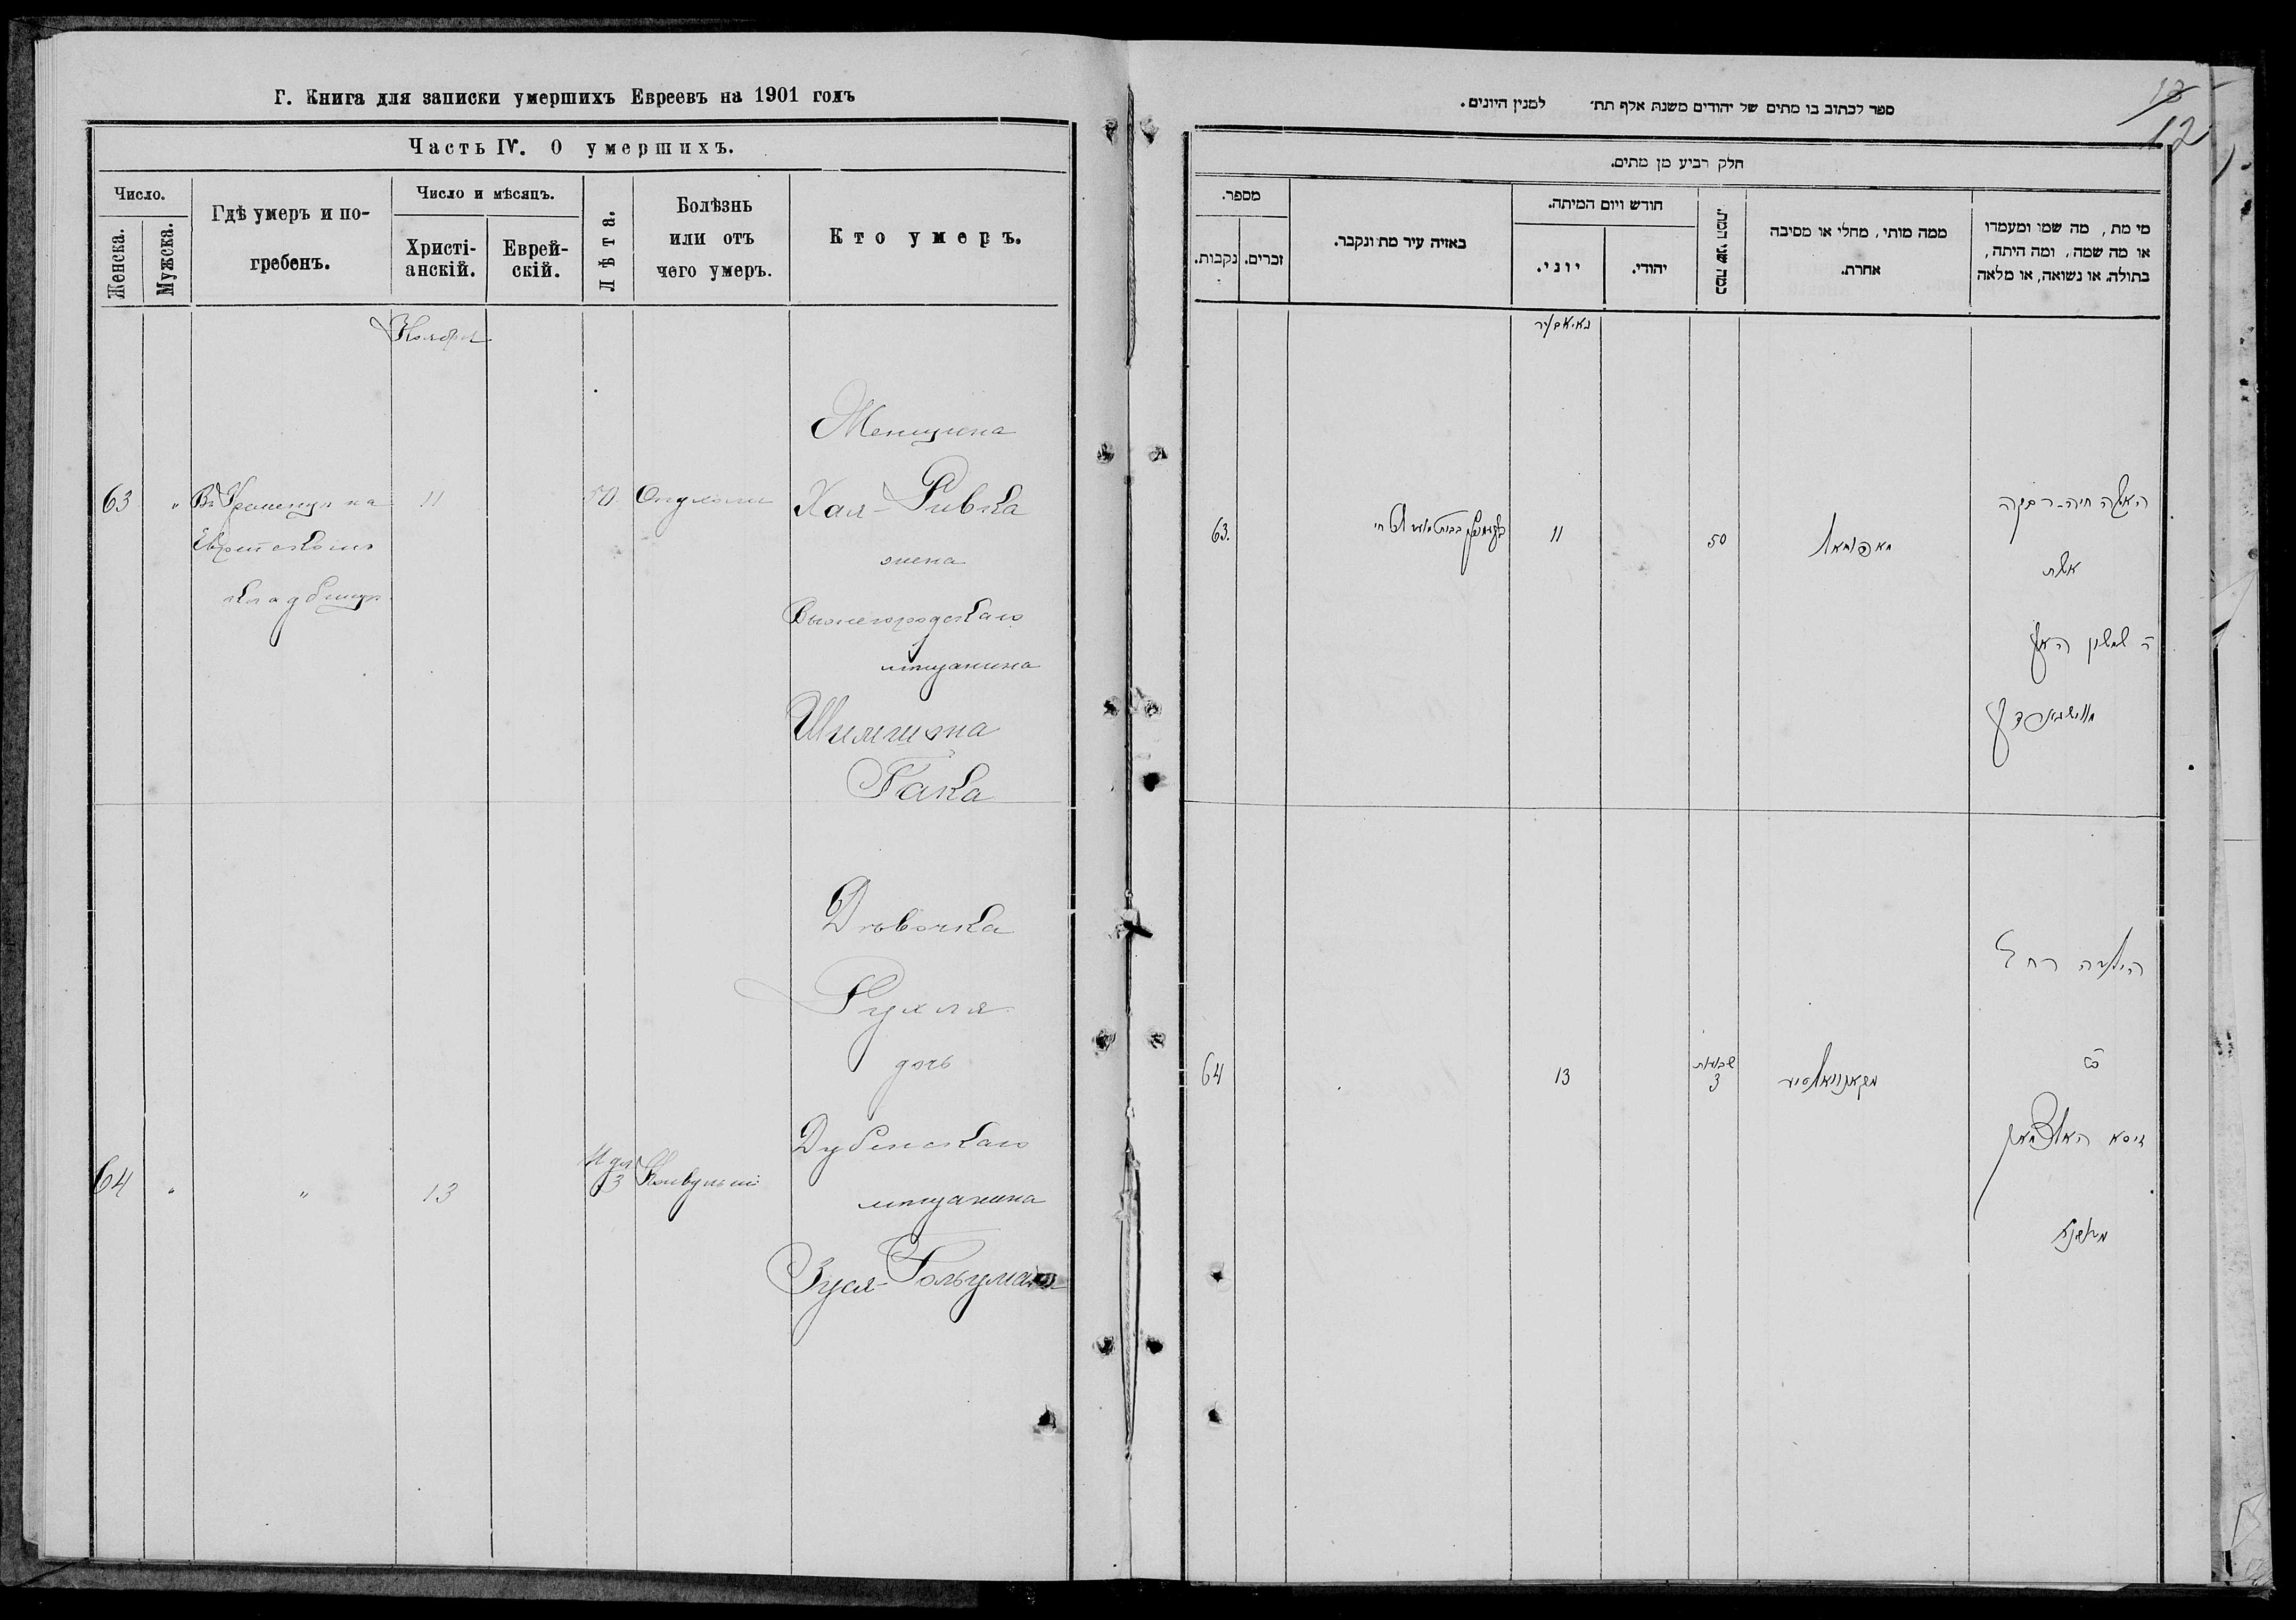 Г. Книга для записки умершихъ Евреевъ на 1901 годъ
Часть IV. О умершихъ.
Число.
Женска.
Мужска.
Гдѣ умеръ и по-
гребенъ.
Число и мѣсяцъ.
Христі-
анскій.
Еврей-
скій.
Лѣта.
Болѣзнь
или отъ
чего умеръ.
Кто умеръ.
Ноября
Женщина
63 " Въ Кременцѣ на 11 50 Опухоли Хая-Ривка
Еврейскомъ
жена
кладбищѣ
Вышегородскаго
мѣщанина
Шимшона
Гака
Дѣвочка
Рухля
дочь
Дубенскаго
64 " " 13 Недѣл 3 Конвульсіи
мѣщанина
Зуся Гольцмана
13
12
ספר לכתוב בו מתים של יהודים משנת אלף תת׳ למנין היונים.
חלק רביע מן מתים.
מספר.
נקבות.
זכרים.
באיזה עיר מת ונקבר.
חודש ויום המיתה.
יוני.
יהודי.
כמה שני המת.
ממה מותי, מחלי או מסיבה
אחרת.
מי מת, מה שמו ומעמדו
או מה שמה, ומה היתה,
בתולה, או נשואה, או מלאה
נאיאבער
האשה חיה-רבקה
63. 11 50
אשת
ה׳ שמשון האק
הילדה רחל
64 13 שבועות 3
בת
זיסא האלצמאן